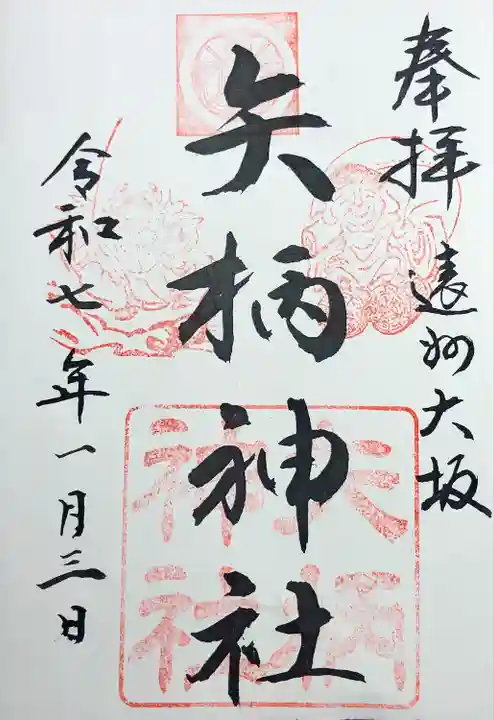 奉拝 遠州大坂
矢柄神社
矢柄
神社
令和七年一月三日